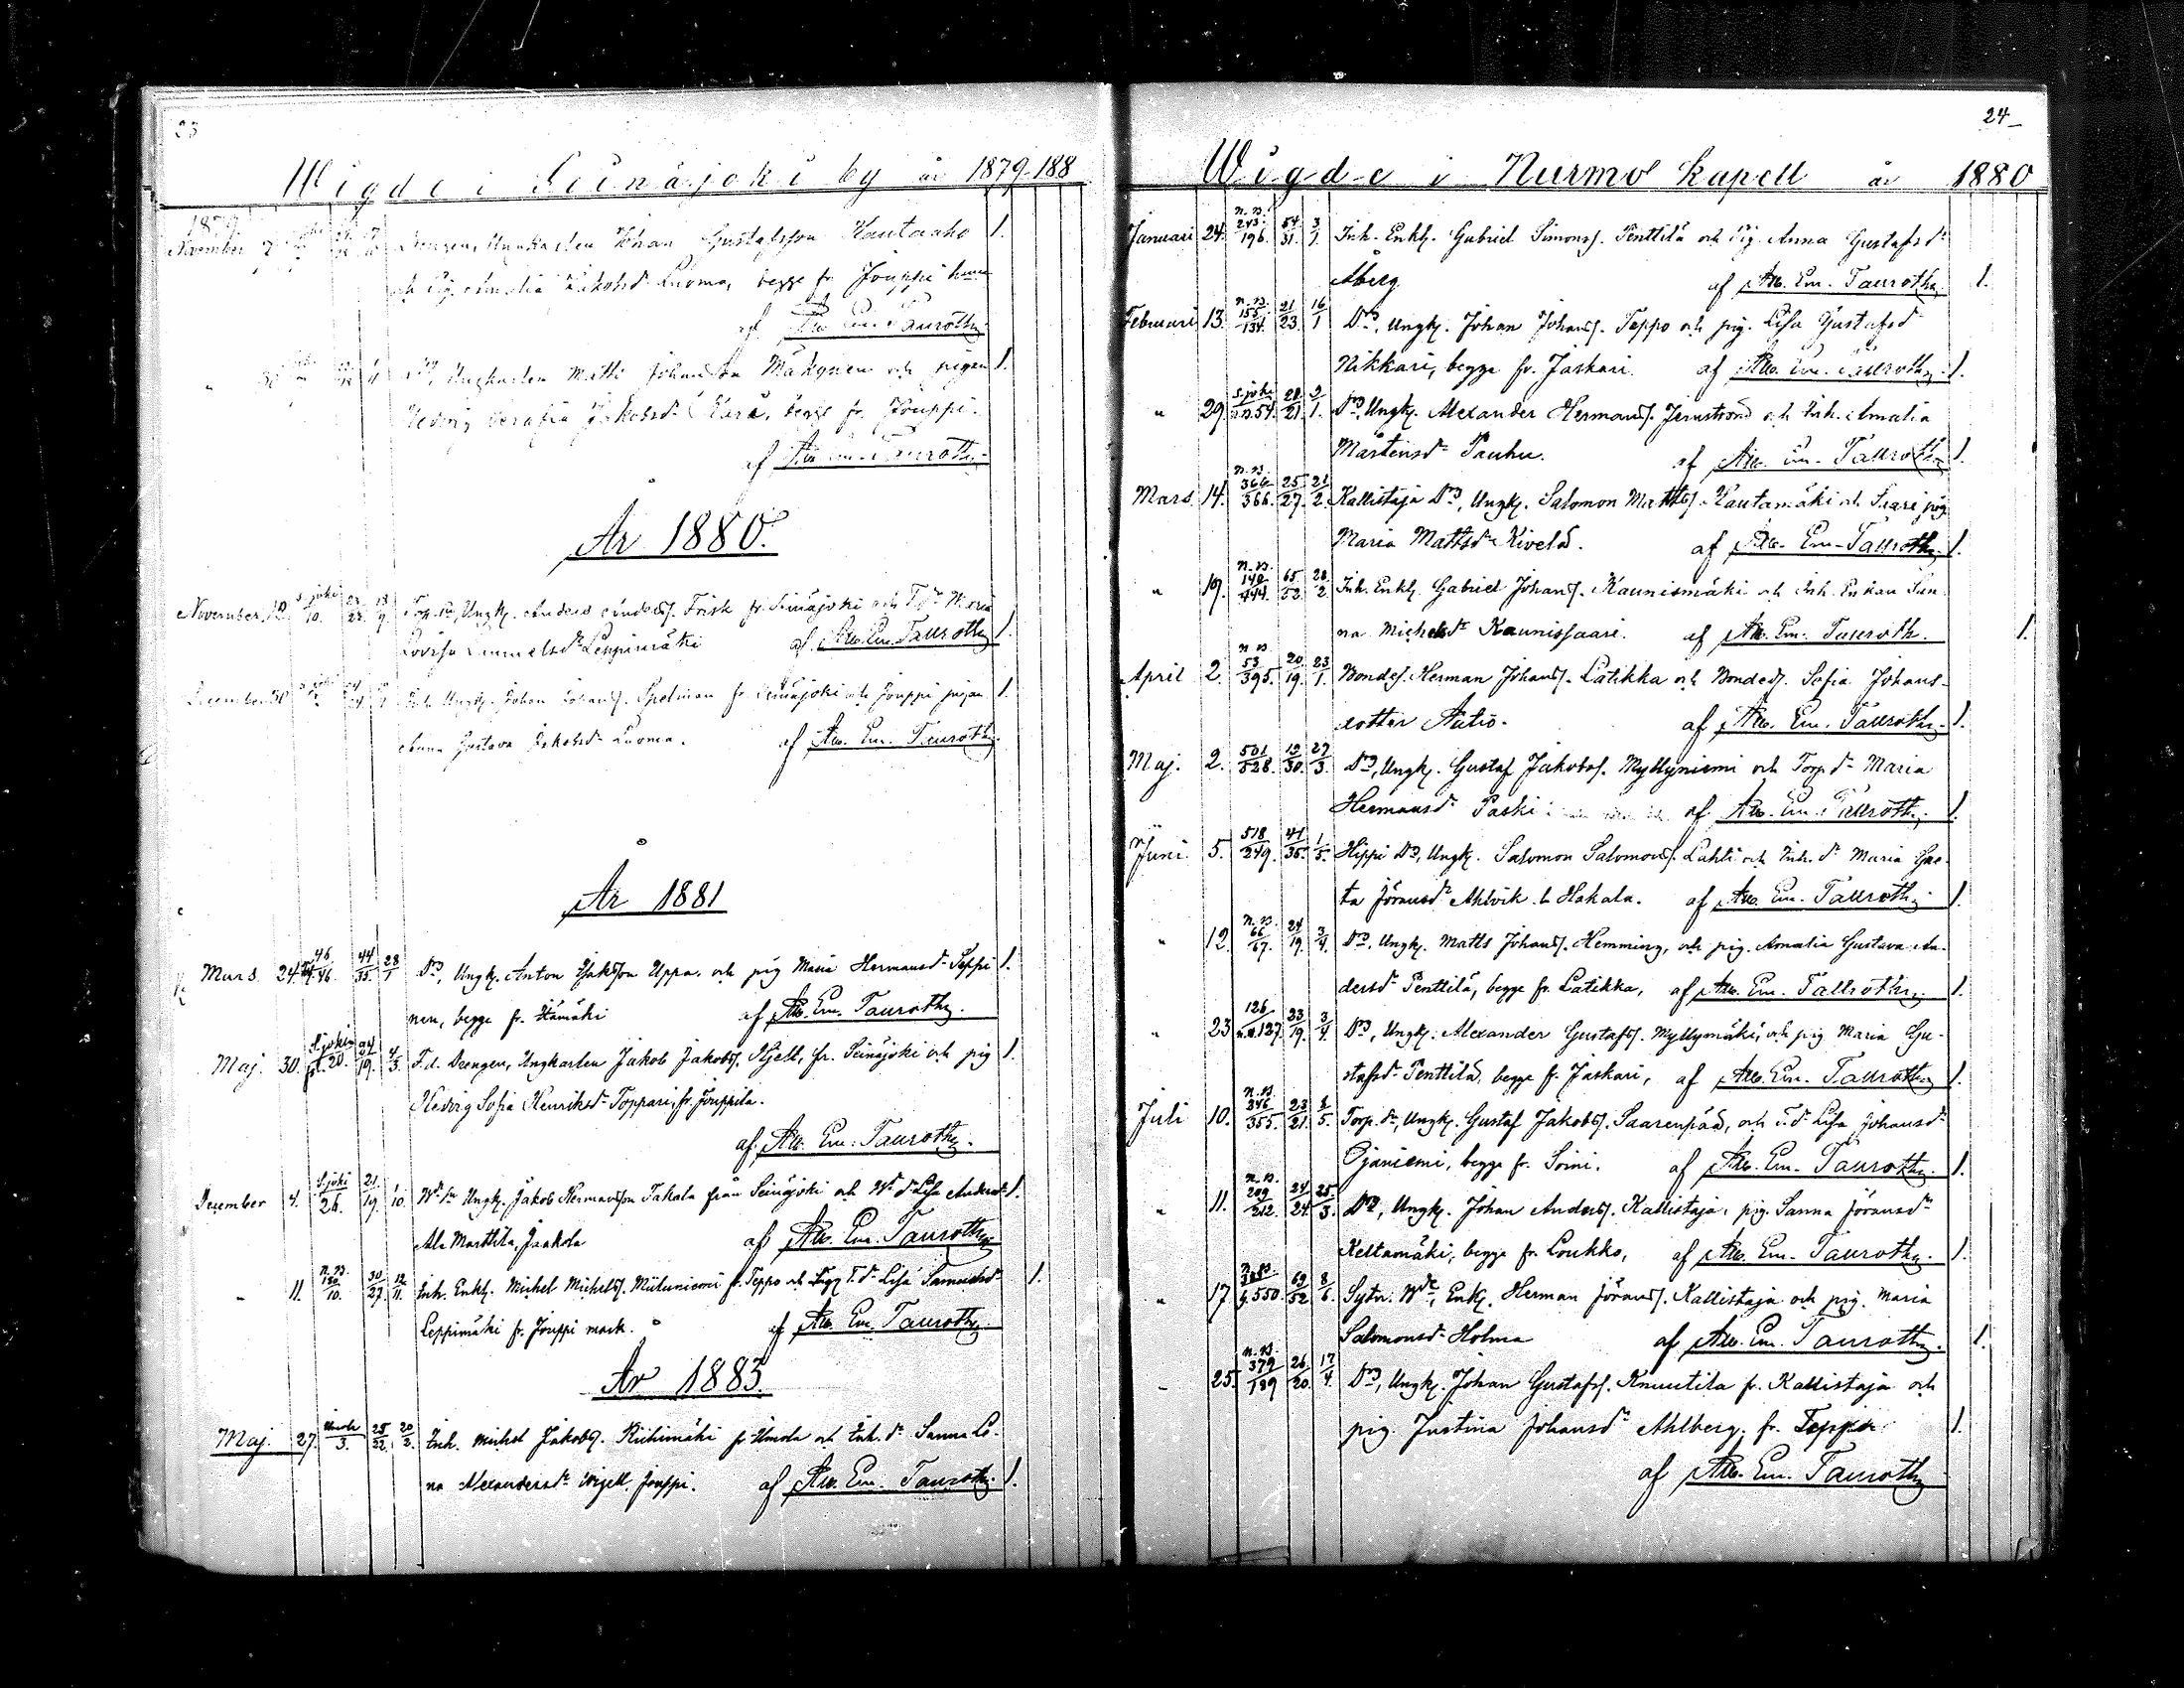 23
Wigde i Seinäjoki by år 1879-188
1879.
November Drengen, Ungkarlen Johan Gustafsson Hautaaho 1.
och Pig. Amalia Jakobsd. Luoma, begge fr. Jouppi
af Alb. Em. Tauroth.
" 30 Dr, Ungkarlen Matti Johansson Mäkynen och pigan 1.
Hedvig Serafia Jakobsd. Karä, begge fr. Jouppi.
af Alb. Em. Tauroth.
År 1880.
November, S.joki 10. Ungk. Anders Anderss. Frisk fr. Seinäjoki och T.dr Maria
Lovisa Samuelsdr Leppimäki af Alb. Em. Tauroth 1.
December 30 Inh. Ungk. Johan Johanss. Spelman fr. Seinäjoki och Jouppi pigan 1.
Anna Gustava Jakobsdr Luoma. af Alb. Em. Tauroth.
År 1881
Mars 24. 46 46. 44 35. 28 1 Dr, Ungk. Anton Isaksson Uppa. och pig Maria Hermansdr Seppi 1.
nen, begge fr. Hämäki af Alb. Em. Tauroth.
Maj. 30. S.joki 20. 24 19. 4 3. F.d. Drengen, Ungkarlen Jakob Jakobss. Kjell, fr. Seinäjoki och pig 1.
Hedvig Sofia Henriksdr Toppari, fr. Jouppila.
af Alb. Em. Tauroth.
December 4. S.joki 26. 21. 19. 1 10. Ungk. Jakob Hermansson Takala från Seinäjoki och Lisa Andersdr 1.
Ala Marttila, Jaakola af Alb. Em. Tauroth.
" 11. n.B. 180 10. 30 27. 12 11. Inh. Enkl. Michel Michelss. Miiluniemi fr. Teppo och T.dr Lisa Samuelsdr 1.
Leppimäki fr. Jouppi mark. af Alb. Em. Tauroth.
År 1883.
Maj. 27. Uinola 3. 25 22. 20 2. Inh. Michel Jakobss. Riihimäki fr. Uinola och Inh. dr Sanna Lo-
na Alexandersdr Wigell, Jouppi. af Alb. Em. Tauroth. 1.
24
Wigde i Nurmo Kapell år 1880
Januari 24. n.B. 243. 196. 54 31. 3 1. Inh. Enkl. Gabriel Simonss. Penttilä och Pig. Anna Gustafsdr
Åberg af Alb. Em. Tauroth. 1.
Februari 13. n.B. 155 134. 21 23. 16 1 Dr, Ungk. Johan Johanss. Teppo och pig. Lisa Gustafsd
Nikkari, begge fr. Jaskari. af Alb. Em. Tauroth. 1.
" 29. S.joki n.B. 54. 28 21. 9 1. Dr, Ungk. Alexander Hermanss. Jernström och Inh. Amalia
Mårtensdr Pauhu. af Alb. Em. Tauroth. 1.
Mars. 14. n.B. 364 366. 25 27. 21 2. Kallistaja Dr, Ungk. Salomon Mattss. Hautamäki och Saari pig
Maria Mattsdr Kivelä. af Alb. Em. Tauroth. 1.
" 19. n.B. 140 444. 65 52. 28 2. Inh. Enkl. Gabriel Johanss. Kaunismäki och Inh. Enkan San
na Michelsdr Kaunissaari. af Alb. Em. Tauroth. 1.
April 2. n.B. 53 395. 20 19. 23 1. Bondes. Herman Johanss. Latikka och Bonded. Sofia Johans-
dotter Autio. af Alb. Em. Tauroth. 1.
Maj. 2. 501 528. 19 30. 27 3. Dr, Ungk. Gustaf Jakobss. Myllyniemi och Torp.dr Maria
Hermansdr Paski af Alb. Em. Tauroth. 1.
Juni. 5. 518 249. 41 35. 1 5. Hippi Dr, Ungk. Salomon Salomonss. Lahti och Inh.dr Maria Gre-
ta Jöransdr Ahlvik l. Hakala. af Alb. Em. Tauroth. 1.
" 12. n.B. 66 67. 24 19. 3 4. Dr, Ungk. Matts Johanss. Hemming, och pig. Amalia Gustava An-
dersdr Penttilä, begge fr. Latikka, af Alb. Em. Tauroth. 1.
" 23. 126 n.B. 127. 23 19. 3 4. Dr, Ungk. Alexander Gustafss. Myllymäki, och pig Maria Gu-
stafsdr Penttilä, begge fr. Jaskari, af Alb. Em. Tauroth. 1.
Juli 10. n.B. 346 355. 23 21. 2 5. Torp.dr, Ungk. Gustaf Jakobss. Saarenpää, och T.dr Lisa Johansdr
Ojaniemi, begge fr. Soini. af Alb. Em. Tauroth. 1.
" 11. n.B. 209 212. 24 24. 25 3. Dr, Ungk. Johan Anderss. Kallistaja, pig. Sanna Jöransdr
Keltamäki, begge fr. Loukko, af Alb. Em. Tauroth. 1.
" 17. 550. 69 52 8 6. Sytn. Enkl. Herman Jöranss. Kallistaja och pig. Maria
Salomonsdr Holma af Alb. Em. Tauroth. 1.
" 25. n.B. 379 189 26 20. 17 4. Dr, Ungk. Johan Gustafss. Knuutila fr. Kallistaja och
pig. Justina Johansdr Ahlberg. fr. Teppo. 1.
af Alb. Em. Tauroth